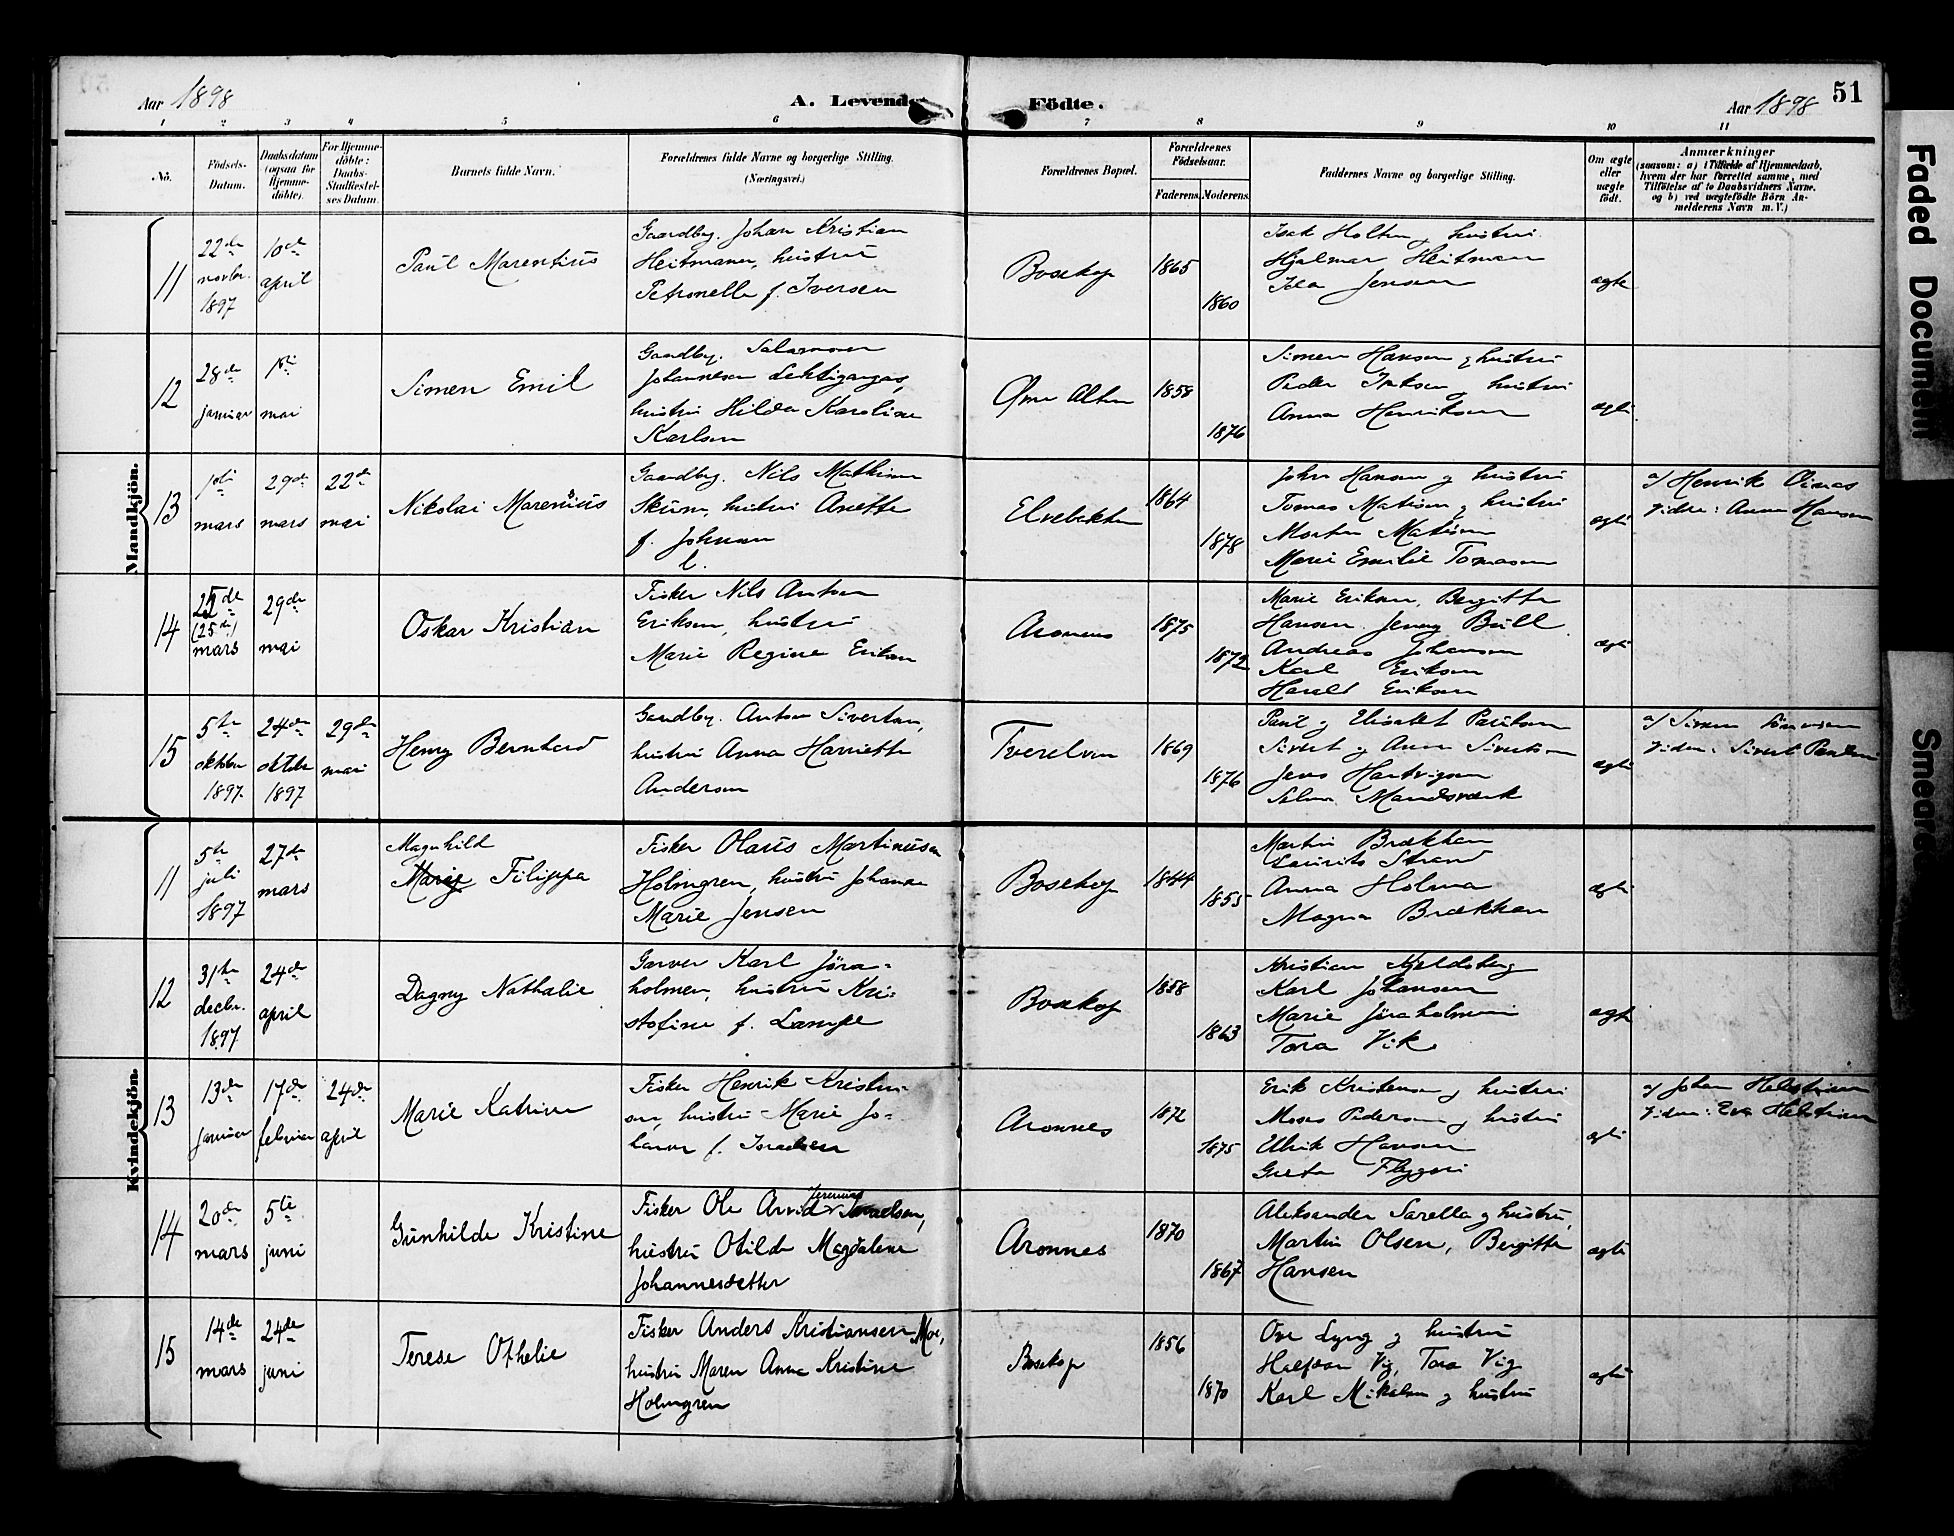 Aar 1898
A. Levende Födte.
Aar 1898
51
1 2 3 4 5 6 7 8 9 10 11
No.
Födsels-
Datum.
Daabsdatum
(ogsaa for
Hjemme-
döbte).
For Hjemme-
döbte:
Daabs-
Stadfæstel-
ses Datum.
Barnets fulde Navn.
Forældrenes fulde Navne og borgerlige Stilling.
(Næringsvei.)
Forældrenes Bopæl.
Forældrenes
Födselsaar.
Faderens. Moderens.
Faddernes Navne og borgerlige Stilling.
Om ægte
eller
uægte
födt.
Anmærkninger
(saasom: a) i Tilfælde af Hjemmedaab,
hvem der har forrettet samme, med
Tilföielse af to Daabsvidners Navne.
og b) ved uægtefödte Börn An-
melderens Navn m. V.)
Mandkjön.
11
22de
novbr.
1897
10de
april
Paul Marentius
Gaardbr. Johan Kristian
Heitmann, hustru
Petronella f. Iversen
Bosekop
1865
1860
Isak Holten og hustru
Hjalmar Heitman
Ida Jensen
ægte
12
28de
januar
1ste
mai
Simen Emil
Gaardbr. Salamon
Johannesen
hustru Hilda Karoline
Karlsen
Øvre Alten
1858
1876
Simen Hansen og hustru
Peder Isaksen og hustru
Anna Henriksen
ægte
13
1ste
mars
29de
mars
22de
mai
Nikolai Marenius
Gaardbr. Nils Mathisen
Skum, hustru Anette
f. Johnsen
Elvebakken
1864
1878
John Hansen og hustru
Tomas Matisen og hustru
Morten Matisen
Marie Emilie Tomasen
ægte
a) Henrik Oinas
Vidne: Anna Hansen
14
(25de)
mars
29de
mai
Oskar Kristian
Fisker Nils Anton
Eriksen, hustru
Marie Regine Eriksen
Aronnes
1875
1872
Marie Eriksen, Bergitte
Hansen. Jenny Bull
Andreas Johansen
Karl Eriksen
Harald Eriksen
ægte
15
5te
oktober
1897.
24de
oktober
1897
29de
mai
Henry Bernhard
Gaardbr. Anton Sivertsen,
hustru Anna Harriette
Andersen
Tverelven
1869
1876
Paul og Elisabet Paulsen
Sivert og Anna Sivertsen
Jens Hartvigsen
Mandsverk
ægte
a) Simen
Vidne: Sivert Paulsen
Kvindekjön.
11
5te
juli
1897
27de
mars
Magnhild
Marie Filippa
Fisker Olaus Martinusen
Holmgren, hustru Johanna
Marie Jensen
Bosekop
1844
1855
Martin Brækhan
Laurits Strand
Anna Holma
Magna Brækkan
ægte
12
31te
decbr.
1897
24de
april
Dagny Nathalie
Garver Karl Jöra-
holmen, hustru Kri-
stofine f. Lampe
Bosekop
1858
1863
Kristian Kjeldsberg
Karl Johansen
Marie Jöraholmen
Tora Vik
ægte
13
13de
januar
17de
februar
24de
april
Marie Katrine
Fisker Henrik Kristen-
sen, hustru Marie Jo-
hanne f. Israelsen
Aronnes
1872
1875
Erik Kristensen og hustru
Moses Pedersen og hustru
Ulrik Hansen
Greta Flygari
ægte
a) Johan Helstrøm
Vidne: Eva Helstrøm
14
20de
mars
5te
juni
Gunhilde Kristine
Fisker Ole Arvid Jeremias Israelsen,
hustru Otilde Magdalene
Johannesdatter
Aronnes
1870
1867
Aleksander Sarella og hustru,
Martin Olsen, Bergitte
Hansen
ægte
15
14de
mars
24de
juni
Terese Othelie
Fisker Anders Kristiansen Moe,
hustru Maren Anna Kristine
Holmgren
Bosekop
1856
1870
Ove Lyng og hustru
Halfdan Vig, Tora Vig
Karl Mikalsen og hustru
ægte
Faded Document
Smeared